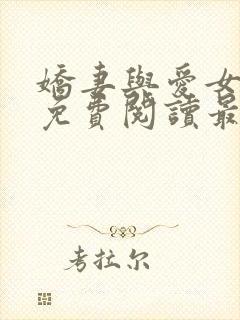 嬌妻與愛女
免費閱讀最
考拉尔